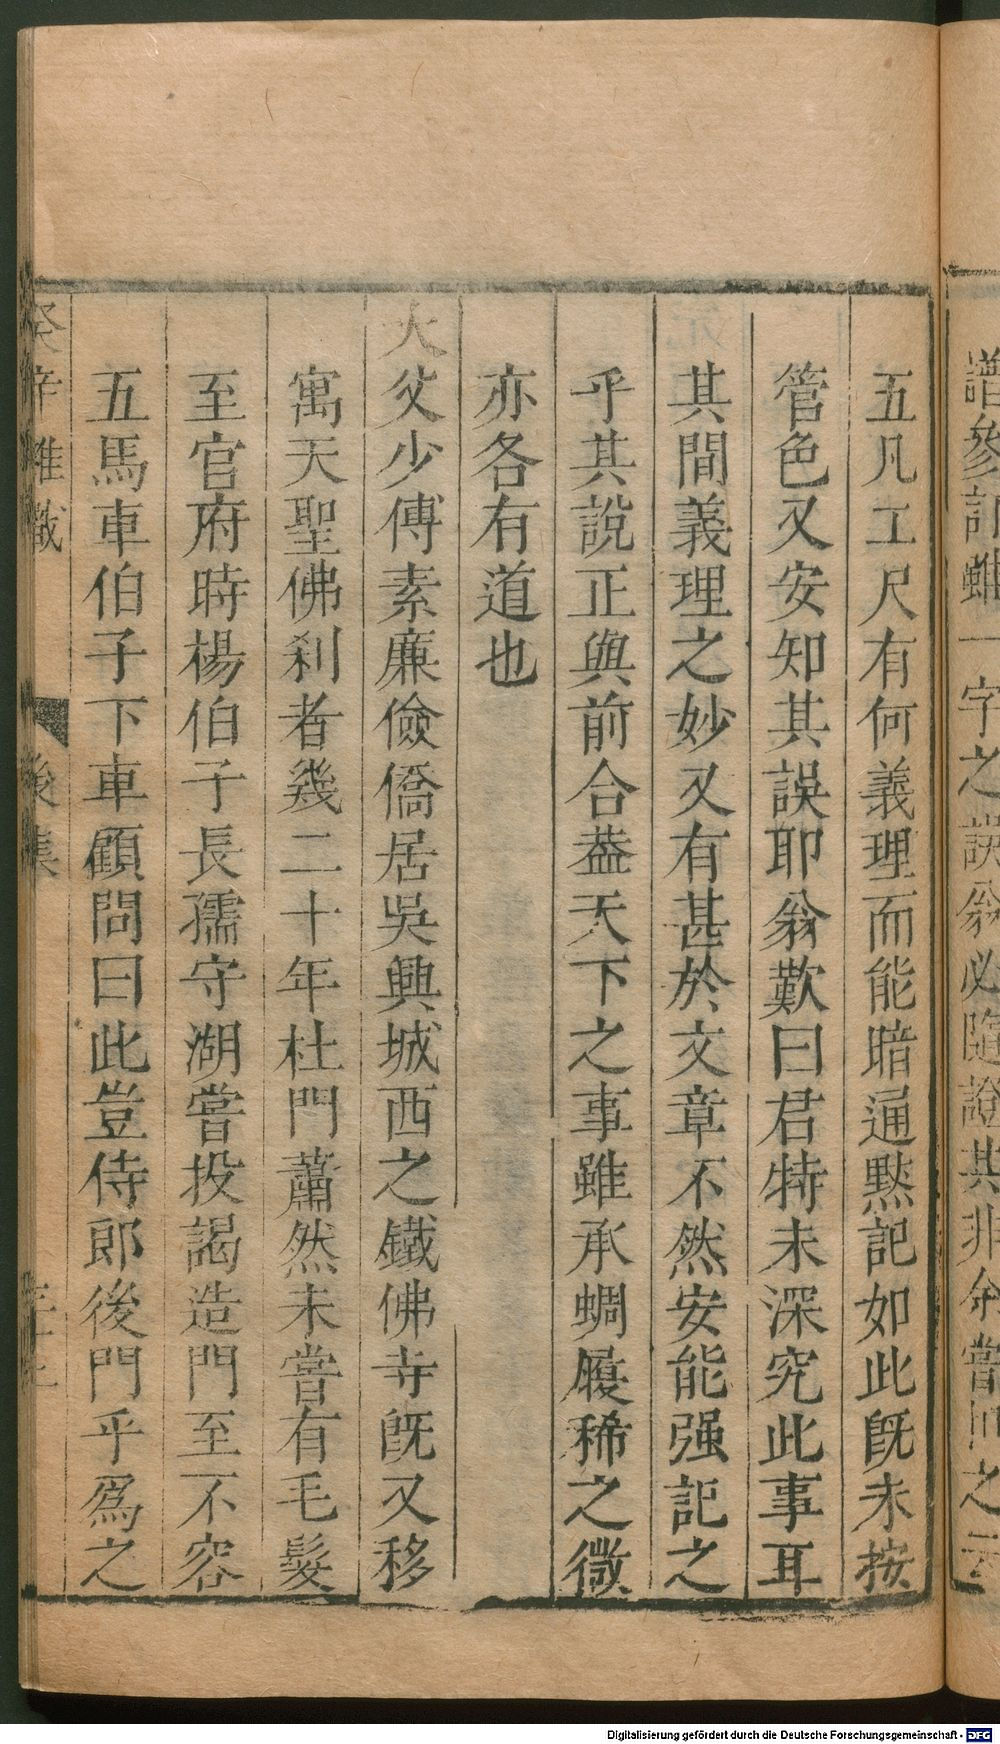 譜參訂雖一字之誤翁必隨證其非余嘗叩之云
五凡工尺有何義理而能暗通黙記如此旣未按
管色又安知其誤耶翁歎曰君特未深究此事耳
其間義理之妙又有甚於文章不然安能强記之
乎其說正與前合葢天下之事雖承蜩履豨之微
亦各有道也
大父少傅素廉儉僑居吳興城西之鐵佛寺旣又移
寓天聖佛刹者幾二十年杜門蕭然未嘗有毛髮
至官府時楊伯子長孺守湖嘗投謁造門至不容
五馬車伯子下車顧問曰此豈侍郎後門乎爲之
癸辛雜識
後集
Digitalisierung gefördert durch die Deutsche Forschungsgemeinschaft - DFG